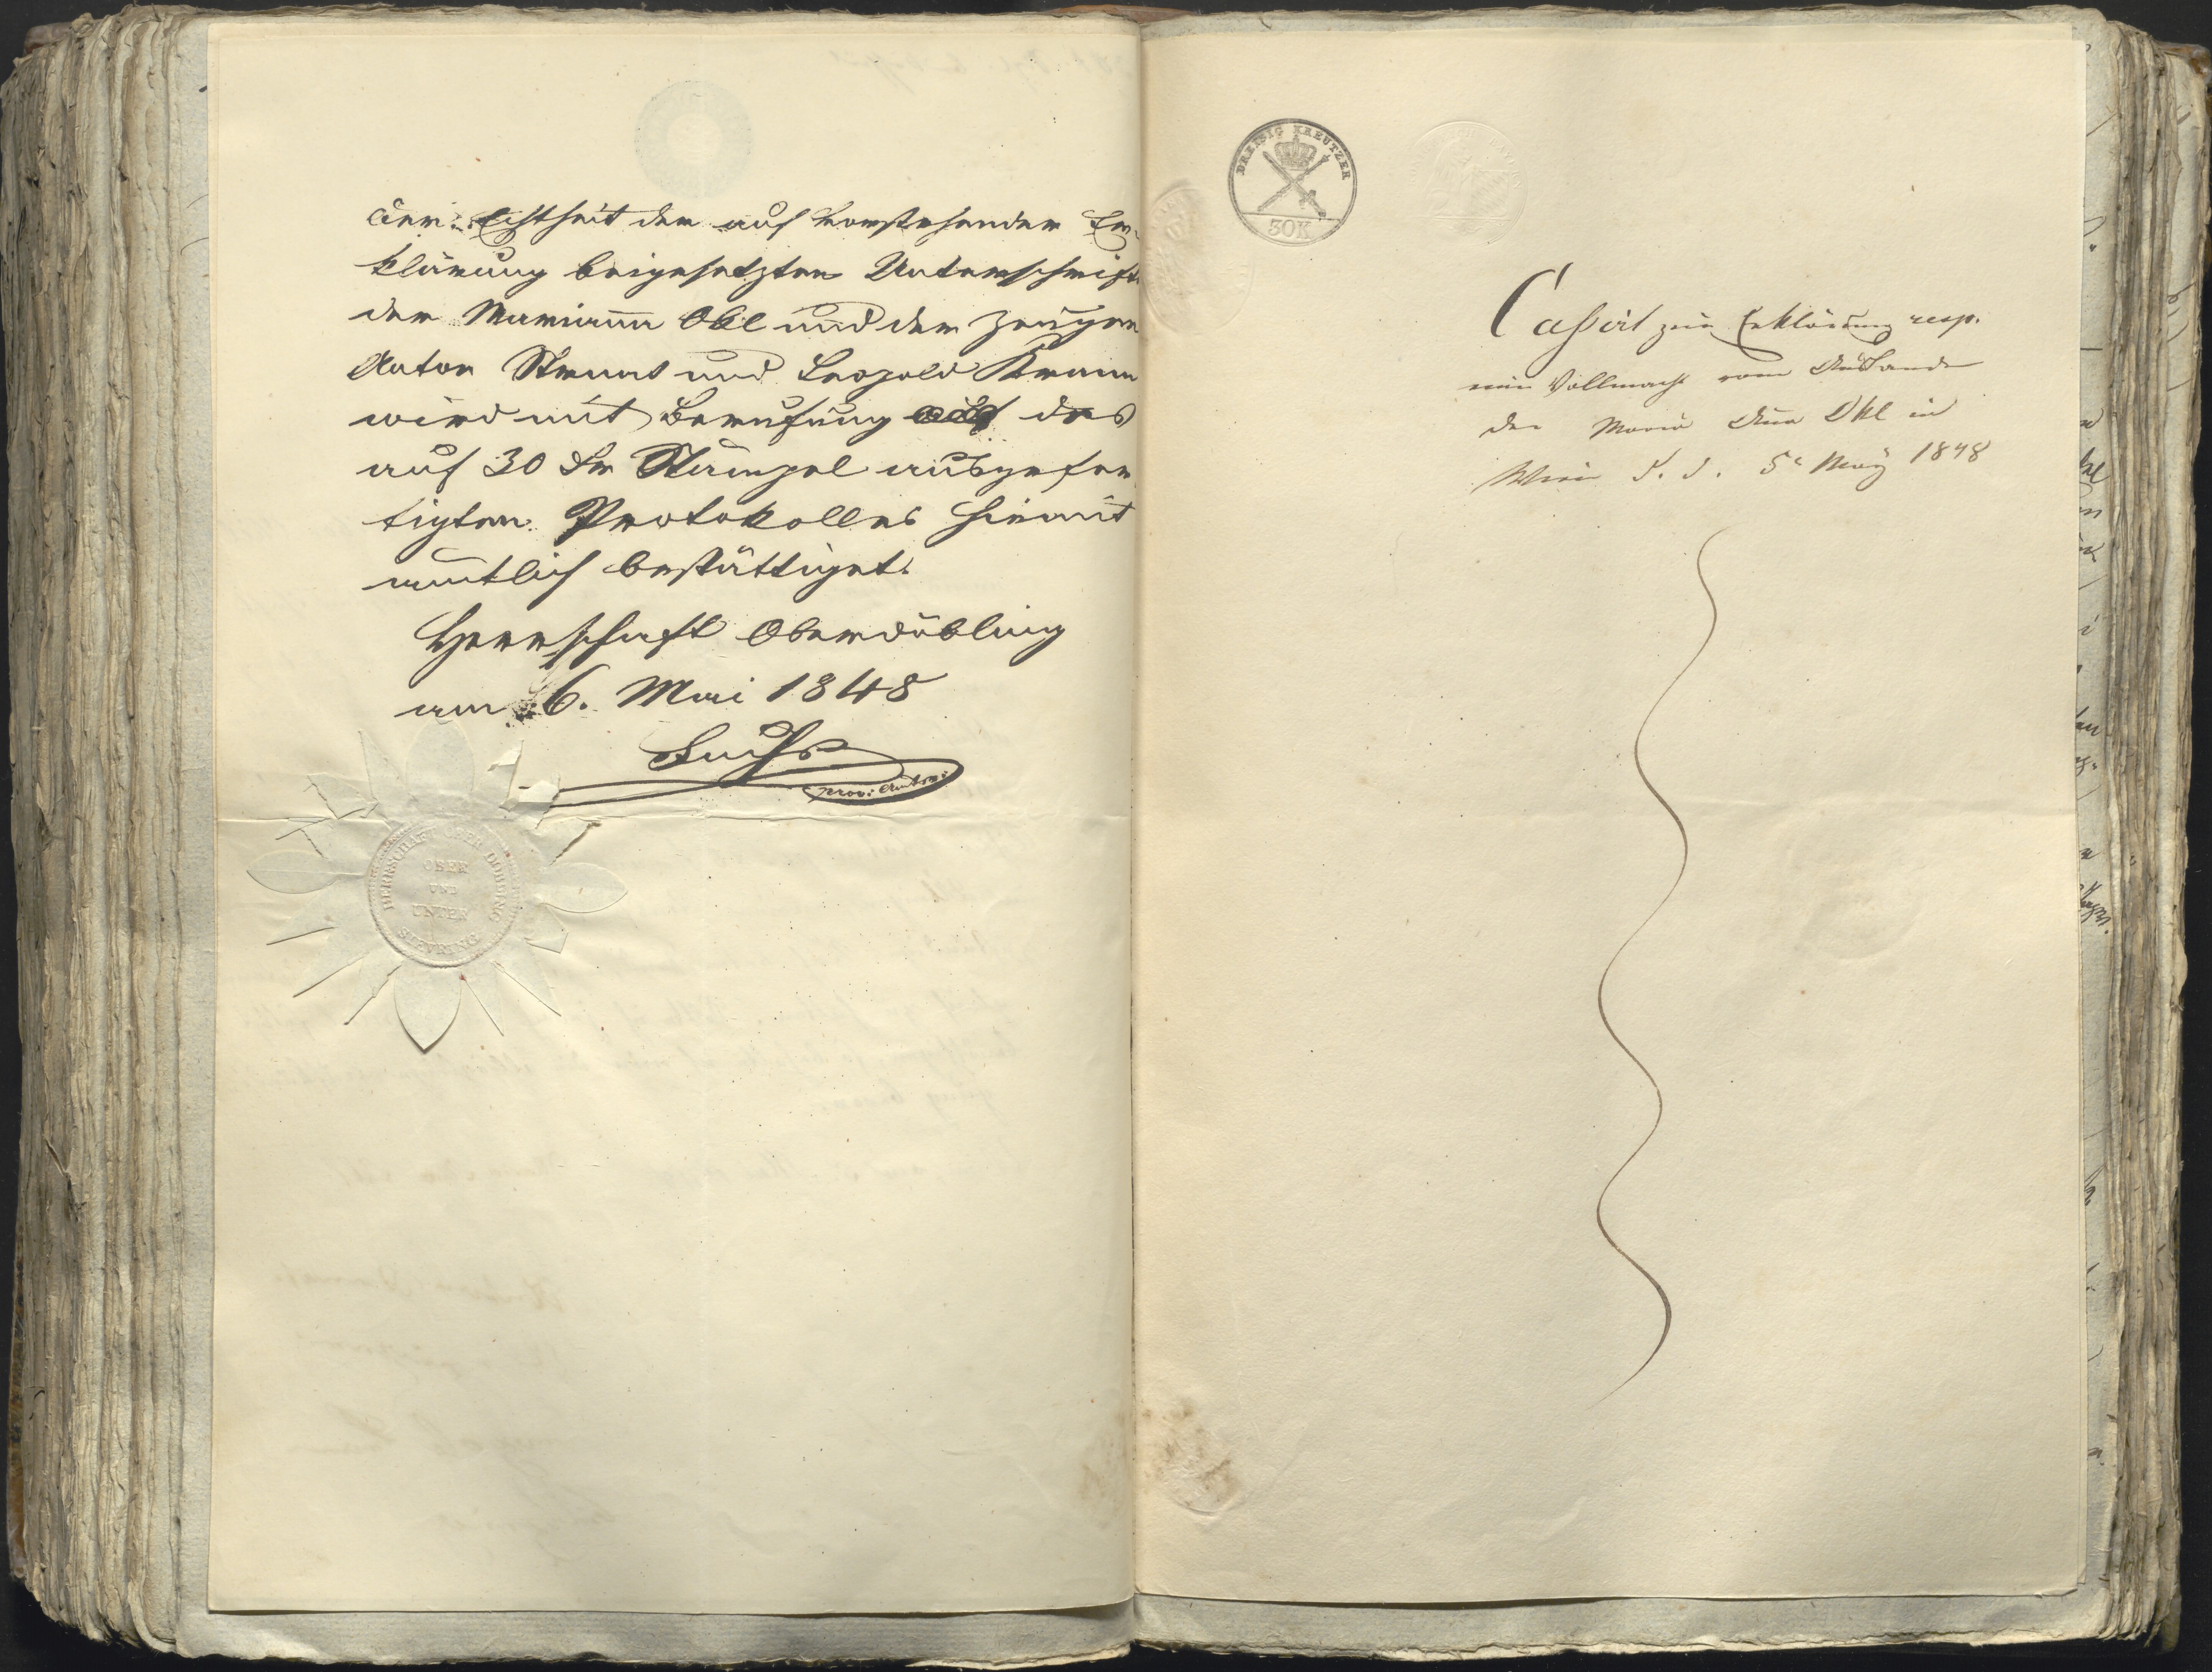 Die Echtheit der auf vorstehender Er-
klärung beigesetzten Unterschrift
der Mariann Okl und der Zeugen
Anton und Leopold
wird mit Berufung auf das
auf 30 Kr Stämpel ausgefer
tigten Protokolles hiemit
amtlich bestättiget.
Herrschaft Oberdöbling
am 6. Mai 1848
Fuchs
prov: Amtm:
HERRSCHAFT OBER DÖBLING
OBER
UND
UNTER
SIEVRING
DREISSIG KREUTZER
30K
zur Erklärung resp.
Vollmacht vom Auslande
der Maria Anna Okl in
Wien d. d. 5t May 1848